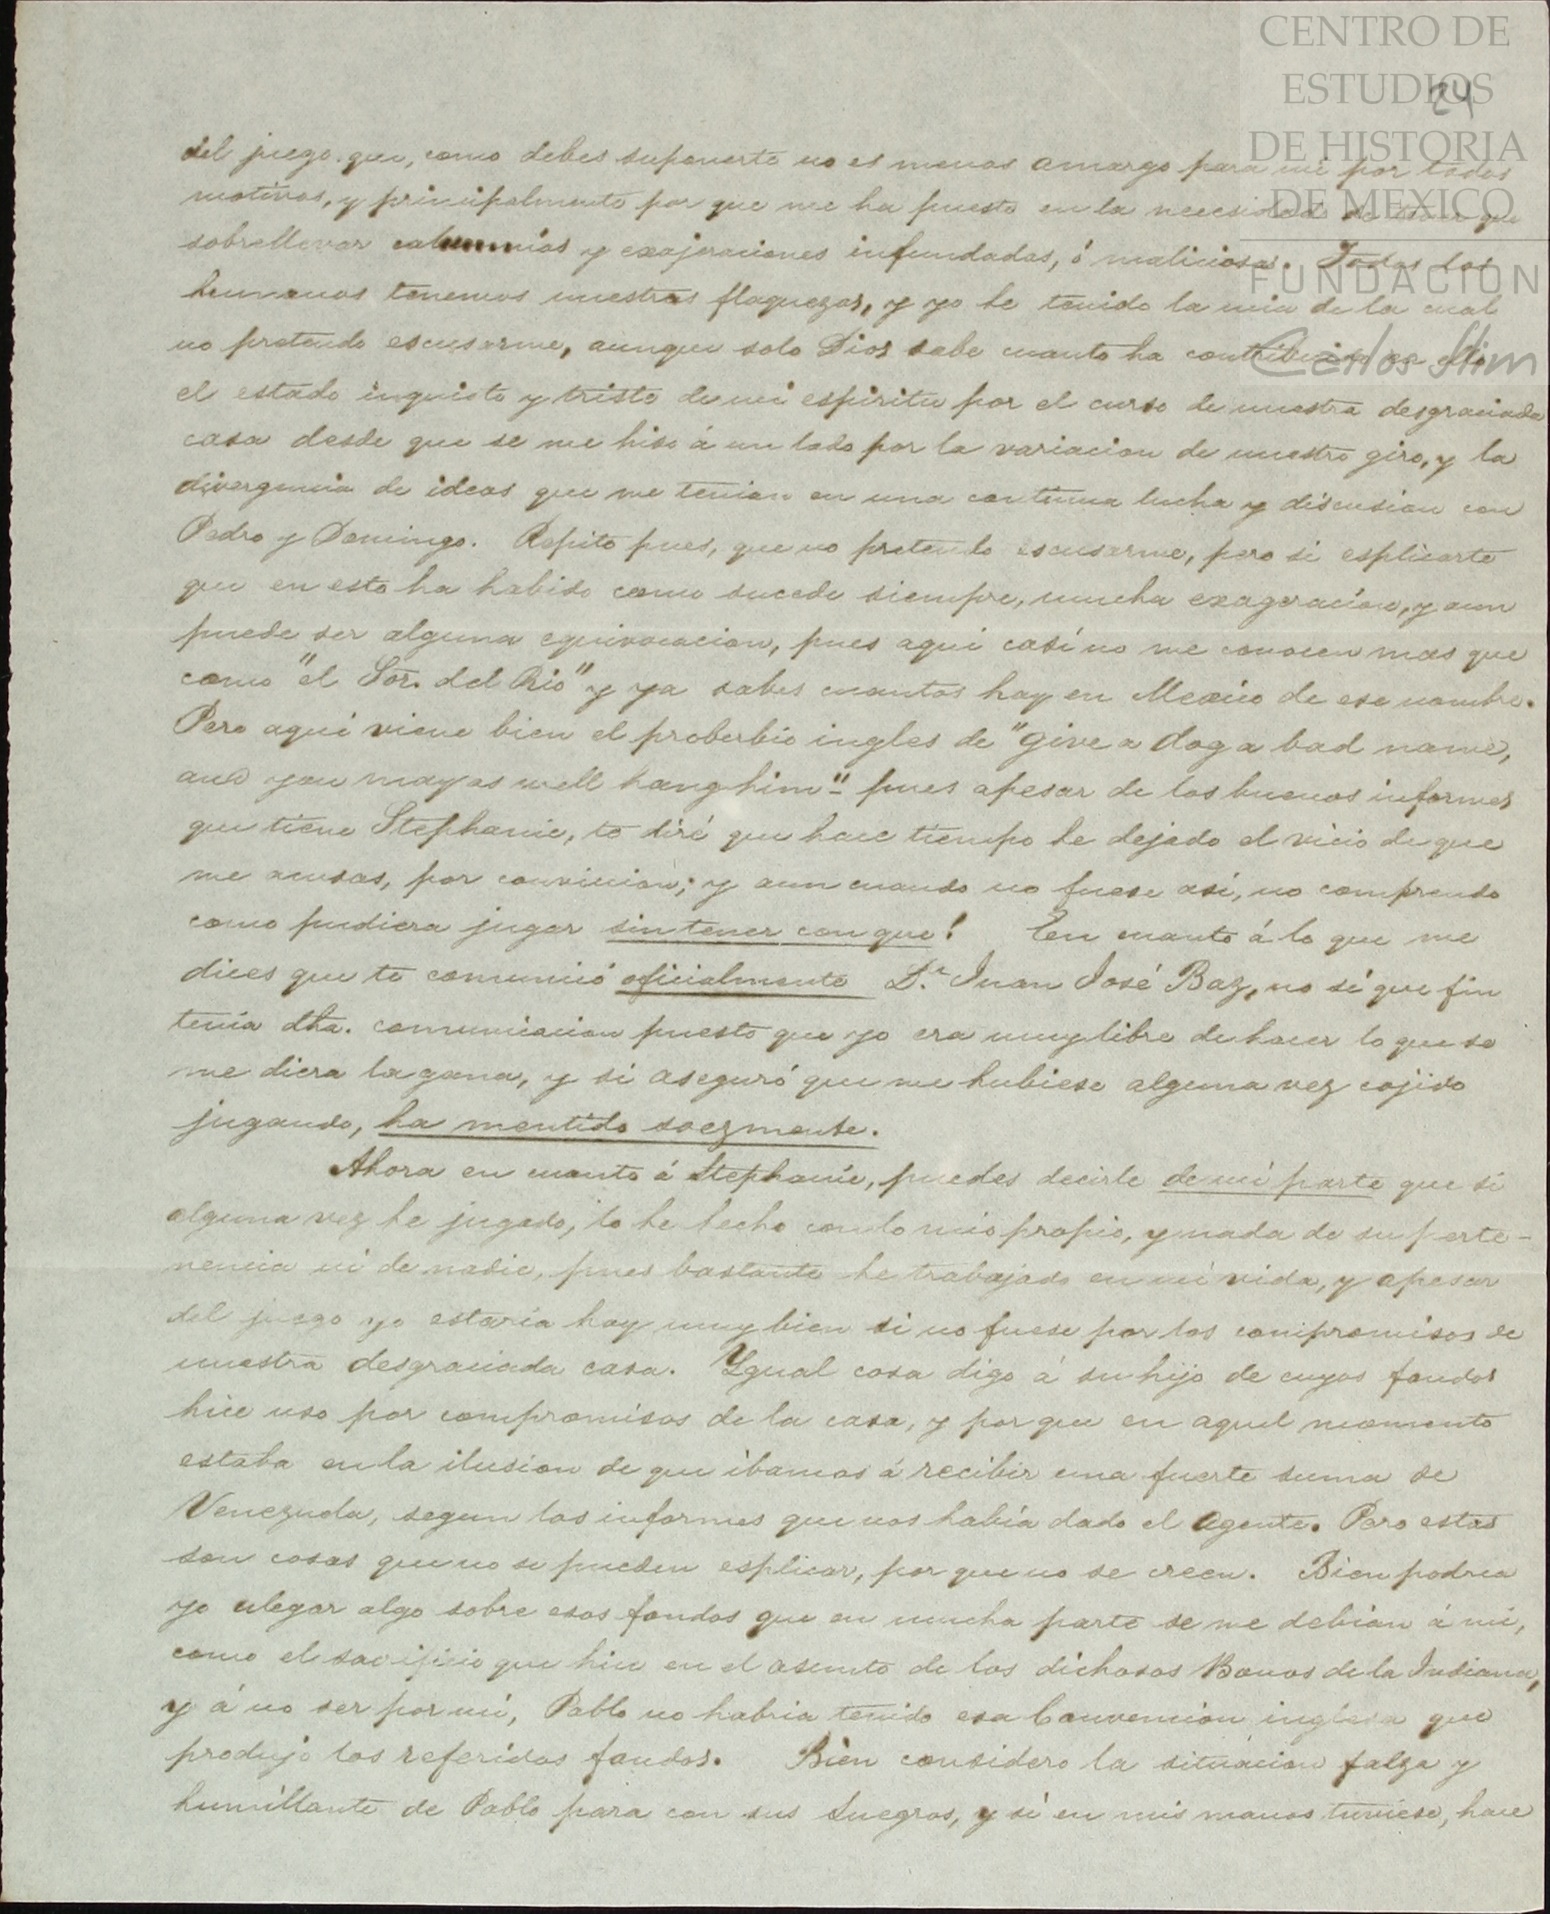 CENTRO DE
ESTUDIOS
DE HISTORIA
DE MEXICO
FUNDACIÓN
Carlos Slim
24
del juego que, como debes suponerte no es menos amargo para mi por todos
motivos, y principalmente por que me ha puesto en la necesidad de tener que
sobrellevar calumnias y exajeraciones infundadas, ó maliciosas. Todos los
humanos tenemos nuestras flaquezas, y yo he tenido la mia de la cual
no pretendo escusarme, aunque solo Dios sabe cuanto ha contribuido en ello
el estado inquieto y triste de mi espiritu por el curso de nuestra desgraciada
casa desde que se me hiso á un lado por la variacion de nuestro giro, y la
divergencia de ideas que me tenian en una continua lucha y discusion con
Pedro y Domingo. Repito pues, que no pretendo escusarme, pero si esplicarte
que en esto ha habido como sucede siempre, mucha exageracion, y aun
puede ser alguna equivocacion, pues aqui casi no me conocen mas que
como "el Sor. del Rio" y ya sabes cuantos hay en Mexico de ese nombre.
Pero aqui viene bien el proberbio ingles de "give a dog a bad name,
and you may as well hang him" pues apesar de los buenos informes
que tiene Stephanie, te diré que hace tiempo he dejado el vicio de que
me acusas, por conviccion; y aun cuando no fuese asi, no comprendo
como pudiera jugar sin tener con que! En cuanto á lo que me
dices que te comunicó oficialmente Dn. Juan José Baz, no sé que fin
tenia dha. comunicacion puesto que yo era muy libre de hacer lo que se
me diera la gana, y si aseguró que me hubiese alguna vez cojido
jugando, ha mentido soezmente.
Ahora en cuanto á Stephanie, puedes decirle de mi parte que si
alguna vez he jugado, lo he hecho con lo mio propio, y nada de su perte-
nencia ni de nadie, pues bastante he trabajado en mi vida, y apesar
del juego yo estaria hoy muy bien si no fuese por los compromisos de
nuestra desgraciada casa. Ygual cosa digo á su hijo de cuyos fondos
hice uso por compromisos de la casa, y por que en aquel momento
estaba en la ilusion de que ibamos á recibir una fuerte suma de
Venezuela, segun los informes que nos habia dado el agente. Pero estas
son cosas que no se pueden esplicar, por que no se creen. Bien podria
yo alegar algo sobre esos fondos que en mucha parte se me debian á mi,
como el sacrificio que hice en el asunto de los dichosos Bonos de la Indiana,
y á no ser por mi, Pablo no habria tenido esa Convencion inglesa que
produjo los referidos fondos. Bien considero la situacion falza y
humillante de Pablo para con sus suegros, y si en mis manos tuviese, hace